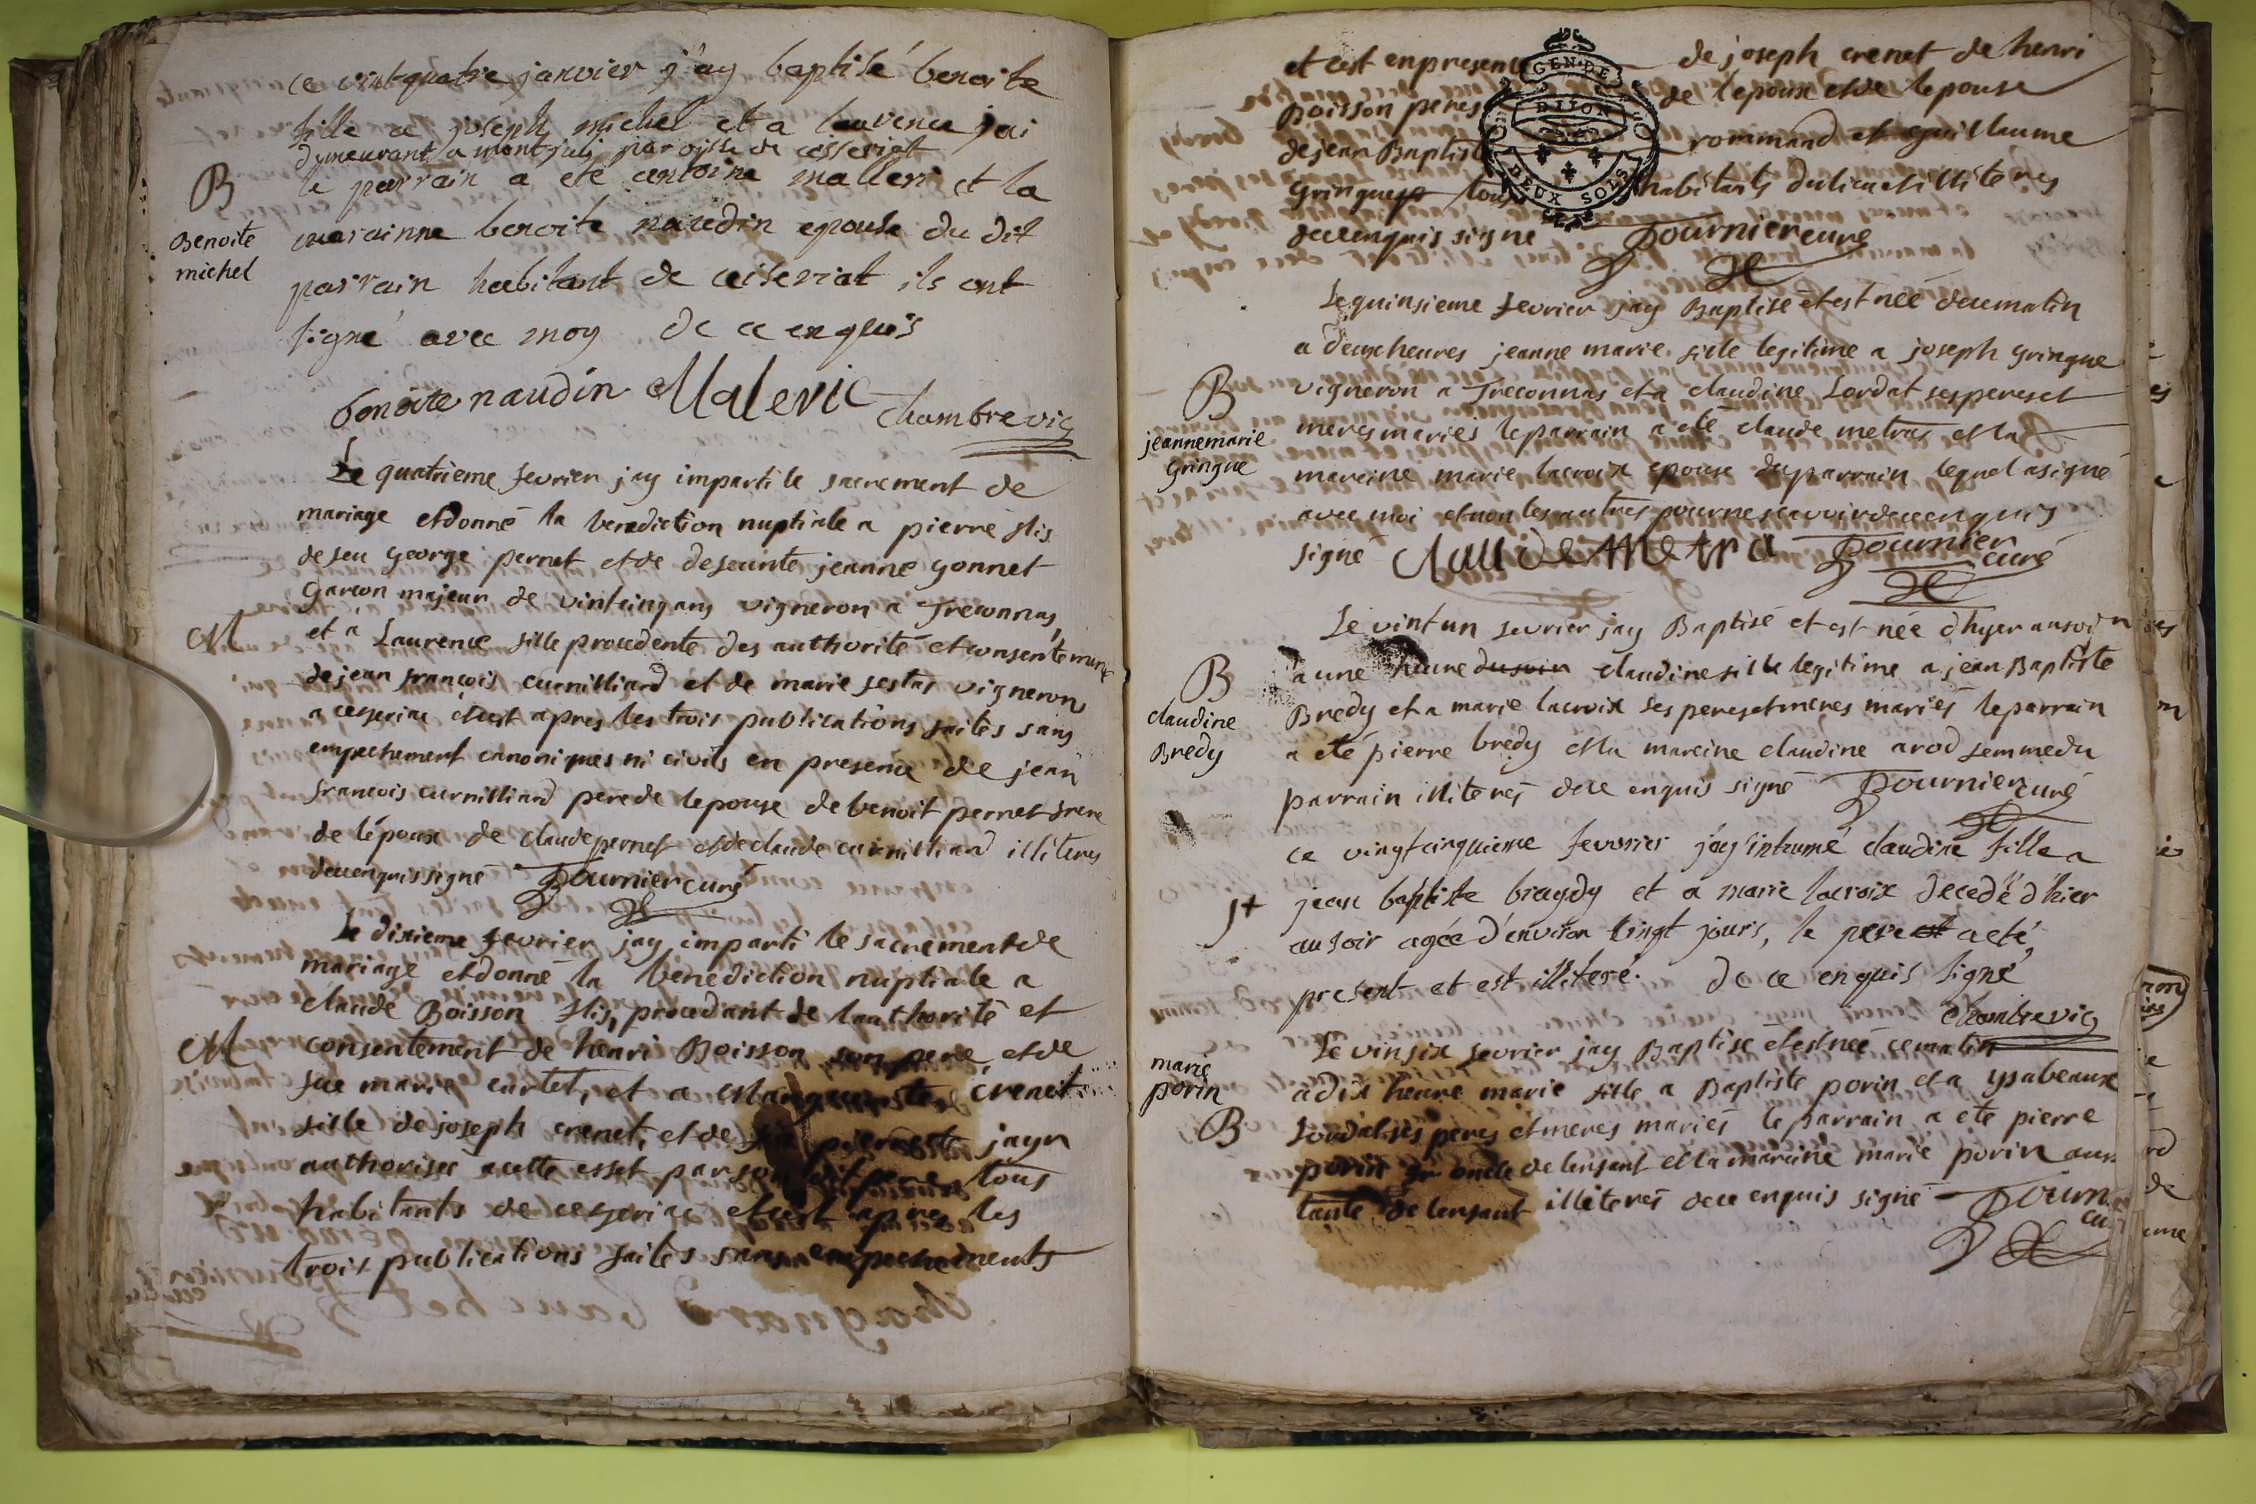 ce vintquatre janvier j'ay baptisé benoite
fille a joseph michel et a laurence jai
dymeurant a montjuli paroisse de cesseriat
le parrain a eté antoine malleri et la
B
Benoite
michel
marainne benoite naudin epouse du dit
parrain habitant de ceiseriat ils ont
signé avec moy de ce enquis
benoite naudin Malevic Chambre vic
Le quatrieme fevrier jay imparti le sacrement de
mariage et donné la benediction nuptiale a pierre flis
de feu george pernet et de defeunte jeanne gonnet
garcon majeur de vintcinq ans vigneron a Treconnas
M
et a Laurence fille procedente des authorité et consentement
de jean francois curnilliard et de marie festas vigneron
a cesseriac et cest apres les trois publications faites sans
empechement canoniques ni civils en presence de jean
francois curnilliard pere de lepouse de benoit pernet frere
de lépoux de claude pernet et de claude curnilliard illiteres
dece enquis signé Fournier curé
Le dixieme fevrier jay imparti le sacrement de
mariage et donné la benediction nuptiale a
claude Boisson flis, procedant de lauthorité et
M
consentement de henri Boisson son pere et de
fue marie curtet, et a crenet
fille de joseph crenet, et de pierrette jayr
authorisée acette effet par son dit pere tous
habitants de cesseriac et cest apres les
trois publications faites sans empechements
et cest en presence de joseph crenet de henri
Boisson peres de lepoux et de lepouse
de jean Baptiste rommand et guillaume
gringue tous habitants du lieu et illiteres
dece enquis signe Fournier curé
GEN. DE
DIJON
DEUX SOLS
Le quinsieme fevrier jay Baptisé et est néé de ce matin
a deux heures jeanne marie fille legitime a joseph gringue
B
jeannemarie
gringue
vigneron a Treconnas et a claudine Lordat ses peres et
meres mariés le parrain a eté claude metras et la
mareine marie lacroix epouse du parrain lequel a signé
avec moi et non les autres pour ne scavoir de ce enquis
signé Claude metra Fournier curé
Le vint un fevrier jay Baptisé et est née d'hyer au soir
B
claudine
Bredy
a une heure du soir claudine fille legitime a jean Baptiste
Bredy et a marie lacroix ses peres et meres mariés le parrain
a eté pierre bredy et la mareine claudine arod femme du
parrain illiterés de ce enquis signé Fournier curé
ce vingtcinquieme fevrier j'ay inhumé claudine fille a
jean baptiste bragdy et a marie lacroix decedé d'hier
au soir agée d'environ vingt jours, le pere et a eté
present et est illiteré. de ce enquis signé
Chambre vic
Le vinsix fevrier jay Baptisé et est néé ce matin
marie
porin
B
a dix heure marie fille a Baptiste porin et a ysabeaux
Lordat ses peres et meres mariés le parrain a eté pierre
porin oncle de lenfant et la mareine marie porin aussi
tante de lenfant illiterés de ce enquis signé Fourn